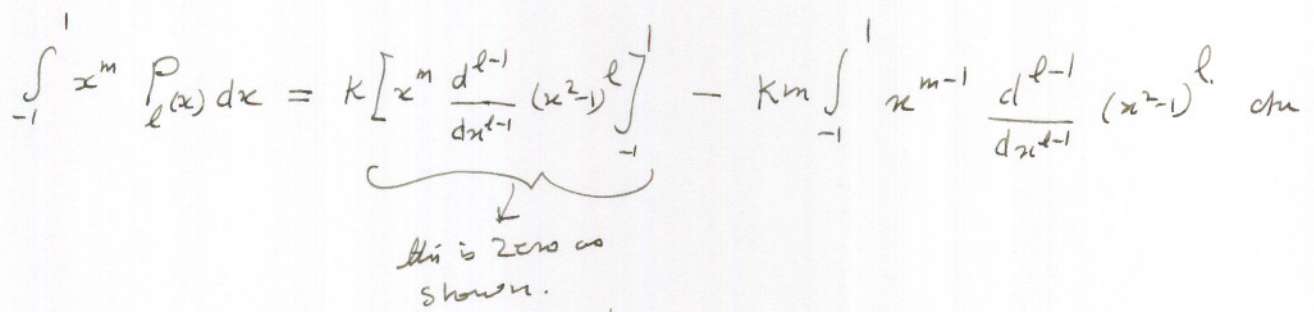 ∫_{-1}^{1} x^m P_ℓ(x) dx = K [ x^m d^{ℓ-1}/dx^{ℓ-1} (x²-1)^ℓ ]_{-1}^{1} - Km ∫_{-1}^{1} x^{m-1} d^{ℓ-1}/dx^{ℓ-1} (x²-1)^ℓ dx
this is zero as
shown.